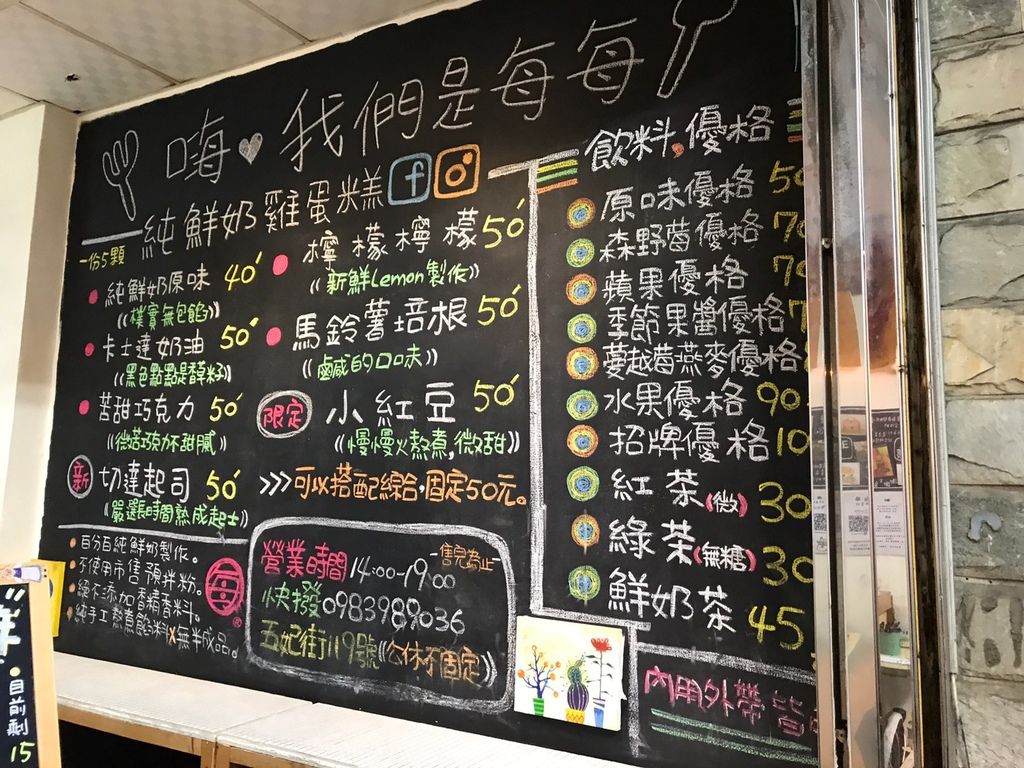 嗨♥我們是每每
純鮮奶雞蛋糕
一份5顆
純鮮奶原味 40
((樸實無包餡))
卡士達奶油 50
((黑色點點是香草籽))
苦甜巧克力 50
((微苦巧克力不甜膩))
新 切達起司 50
((嚴選長時間熟成起士))
檸檬檸檬 50
((新鮮Lemon製作))
馬鈴薯培根 50
(鹹鹹的口味)
限定 小紅豆 50
((慢慢火熬煮,微甜))
>>>可以搭配綜合·固定50元。
百分百純鮮奶製作。
不使用市售預拌粉。
絕不添加香精香料。
純手工熬煮餡料×無半成品。
每
營業時間 14:00-19:00
售完為止
快撥 0983989036
五妃街119號((公休不固定))
飲料,優格
原味優格 50
森野莓優格 70
蘋果優格
季節果醬優格
蔓越莓燕麥優格
水果優格 90
招牌優格
紅茶(微) 30
綠茶(無糖) 30
鮮奶茶 45
內用外帶皆
目前剩
15